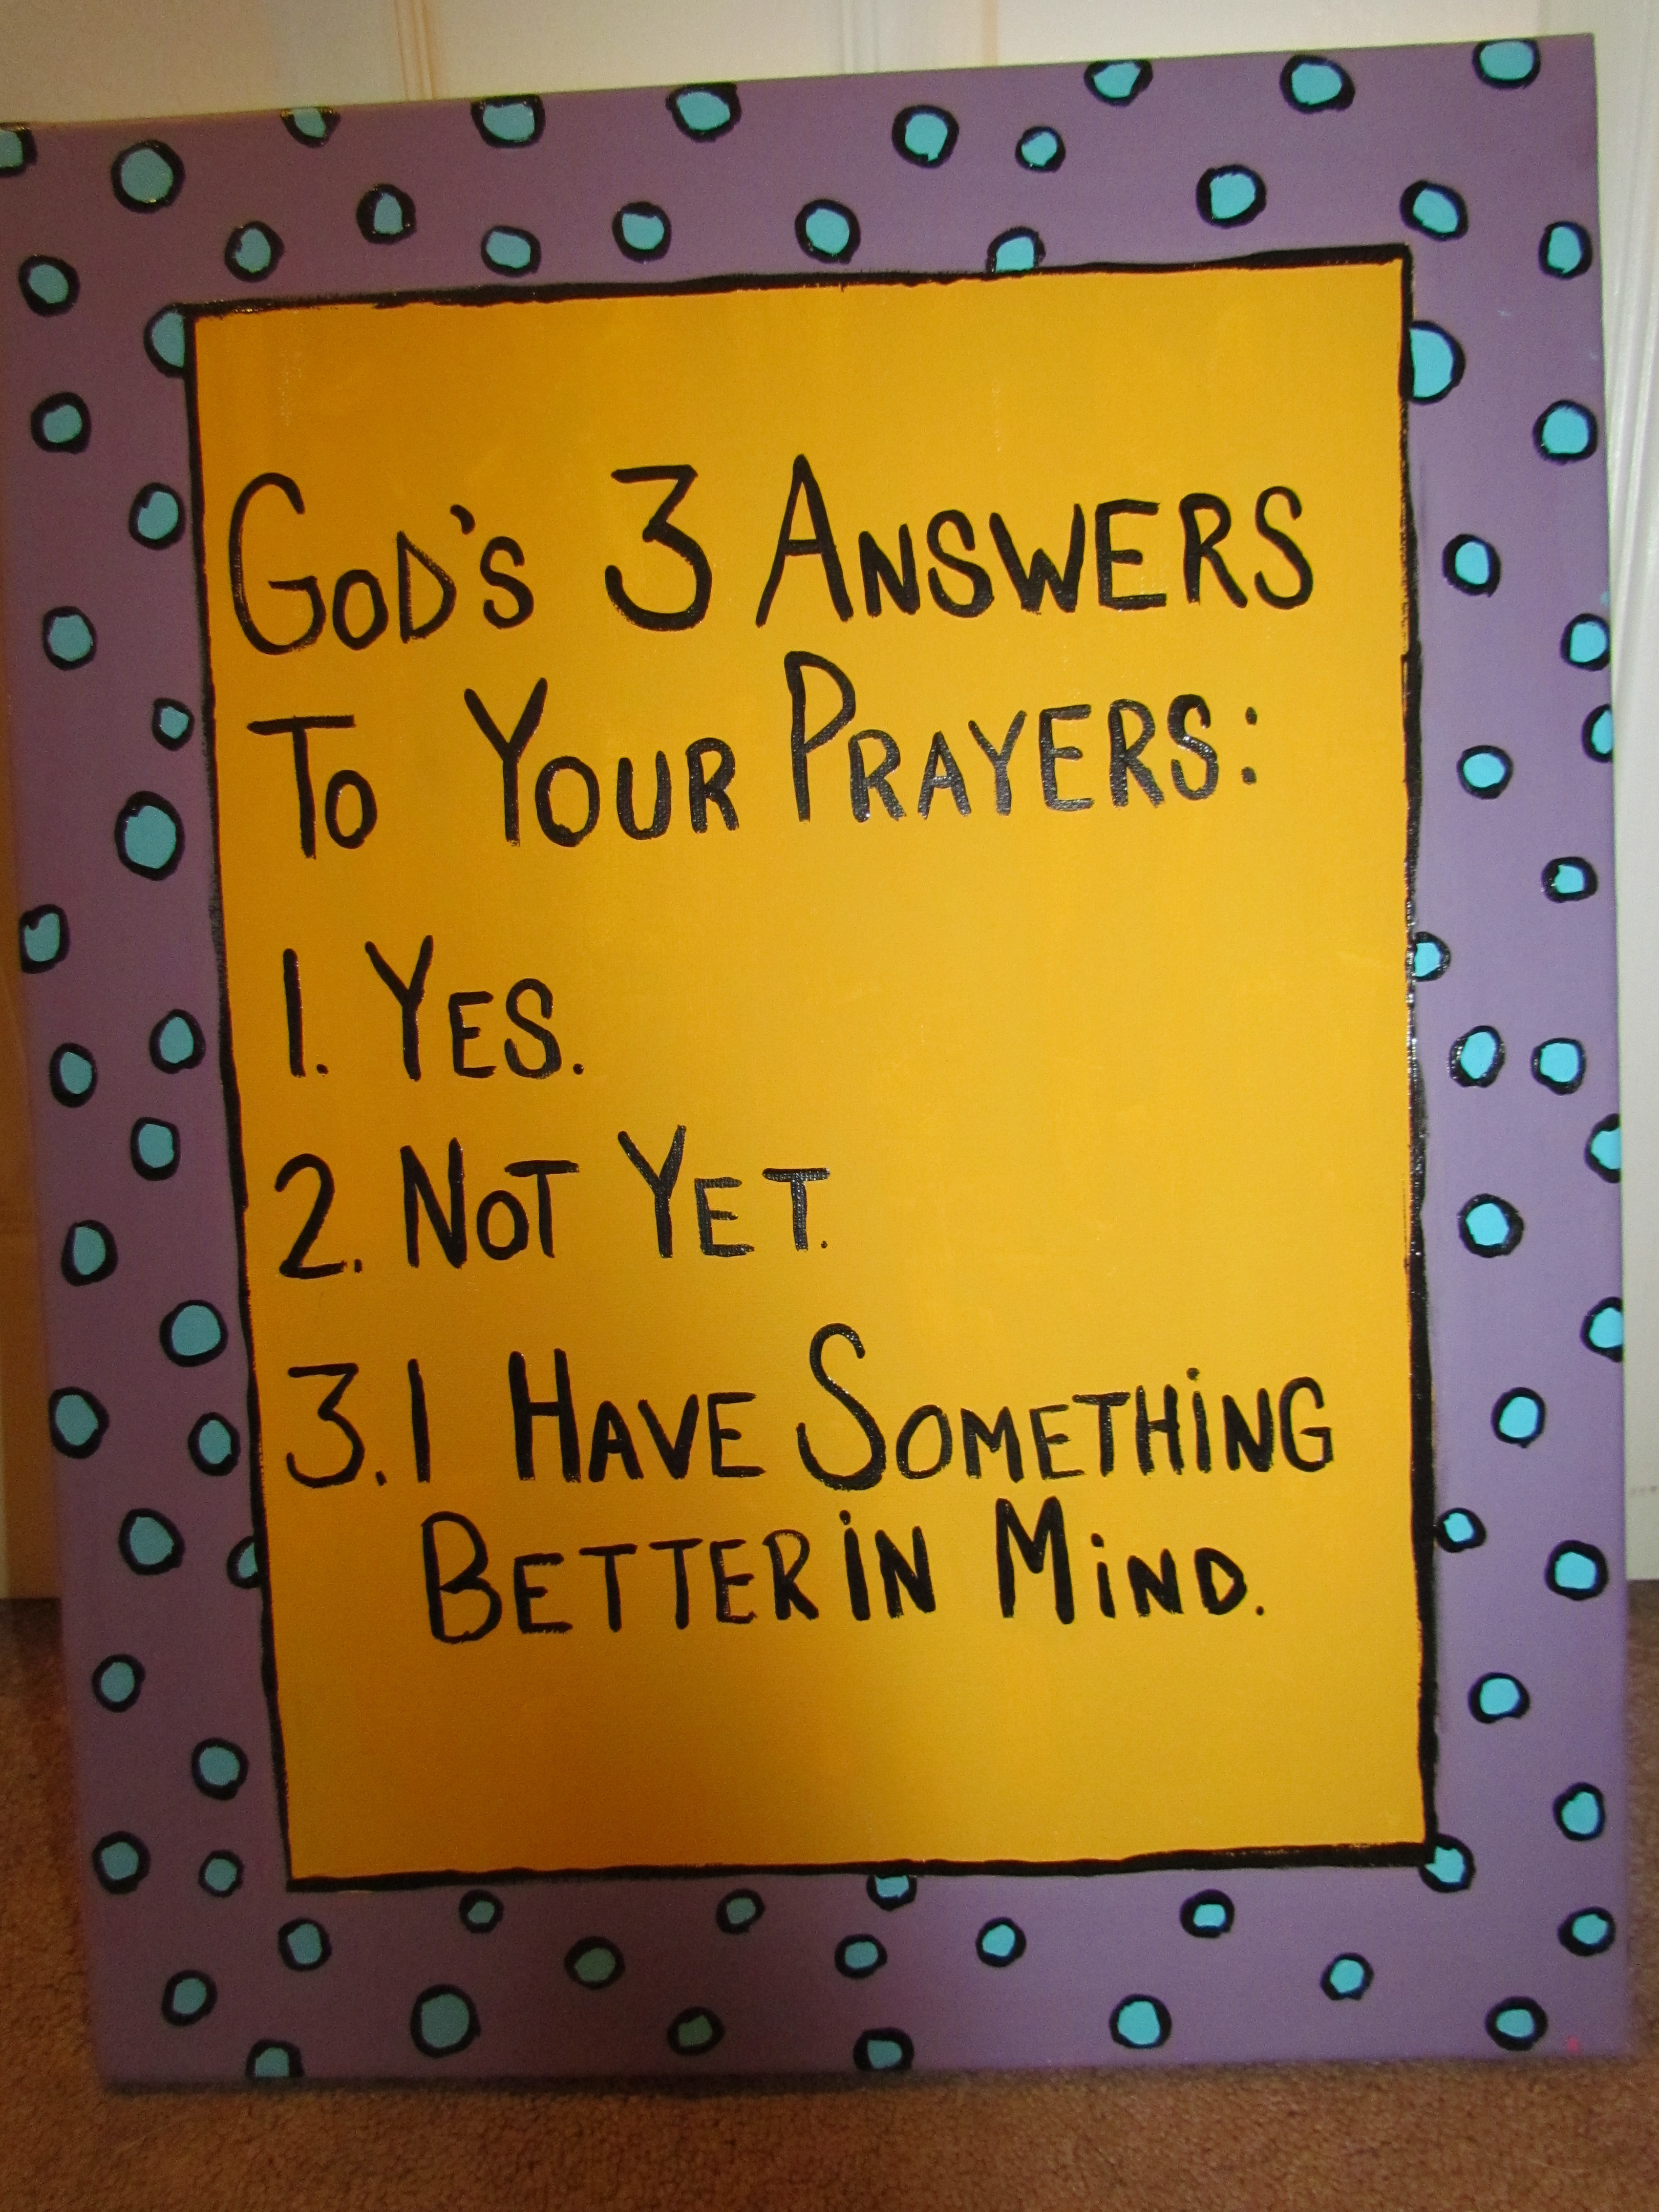 GOD'S 3 ANSWERS
TO YOUR PRAYERS:
1. YES.
2. NOT YET.
3. I HAVE SOMETHING
BETTER IN MIND.